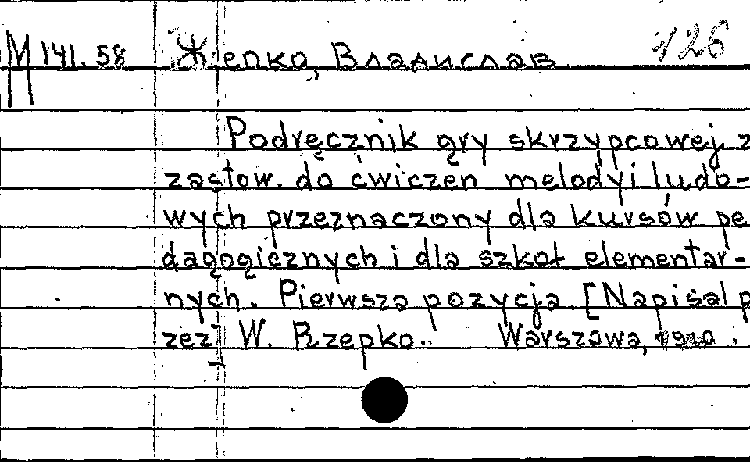 М 141.58 Жепко, Владислав 126
Podręcznik gry skrzypcowej z
zastow. do ćwiczen melodyi ludo-
wych przeznaczony dla kursów pe
dagogicznych i dla szkoł elementar-
nych. Pierwsza pozycja [Napisał p
zez] W. Rzepko. Warszawa, 1920.